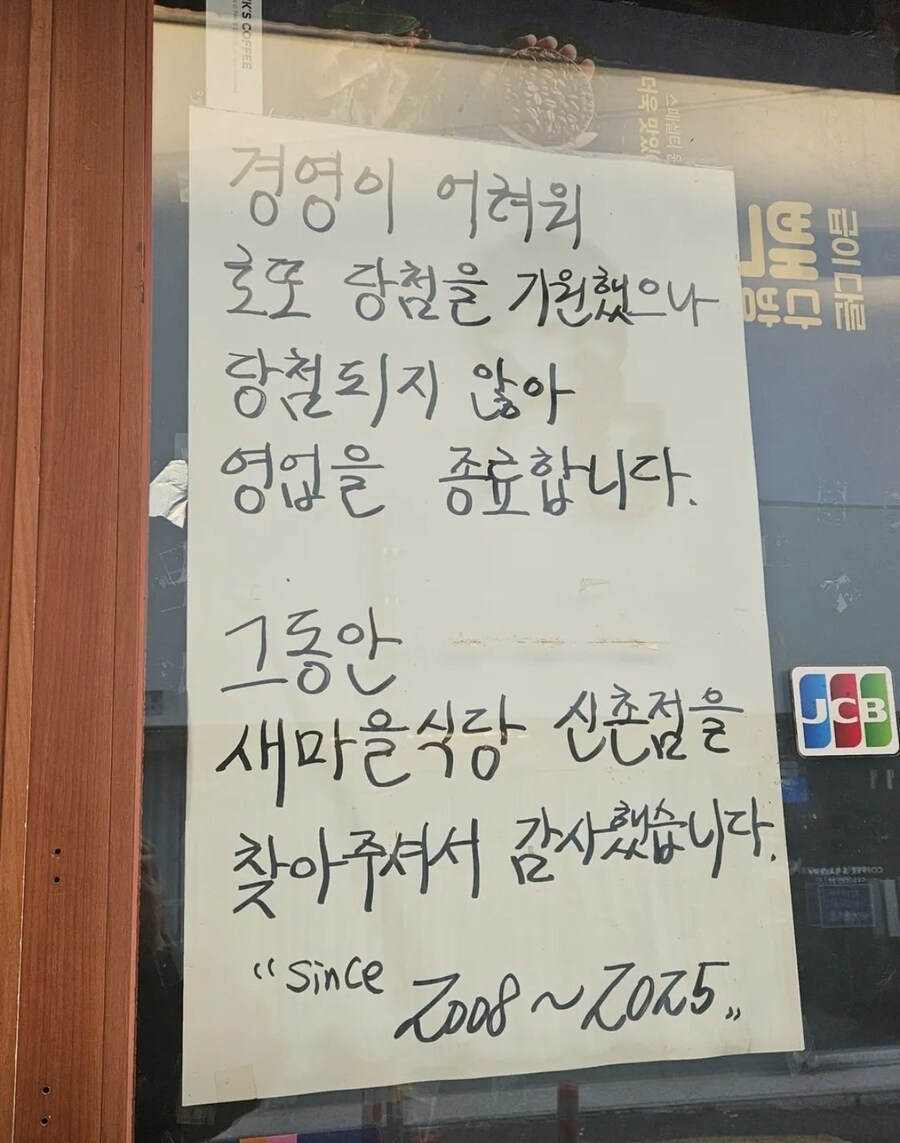 K'S COFFEE
더욱 맛있
스페셜티
급이 다른
빽다방
경영이 어려워
로또 당첨을 기원했으나
당첨되지 않아
영업을 종료합니다.
그동안
새마을식당 신촌점을
찾아주셔서 감사했습니다.
"since 2008 ~ 2025"
JCB